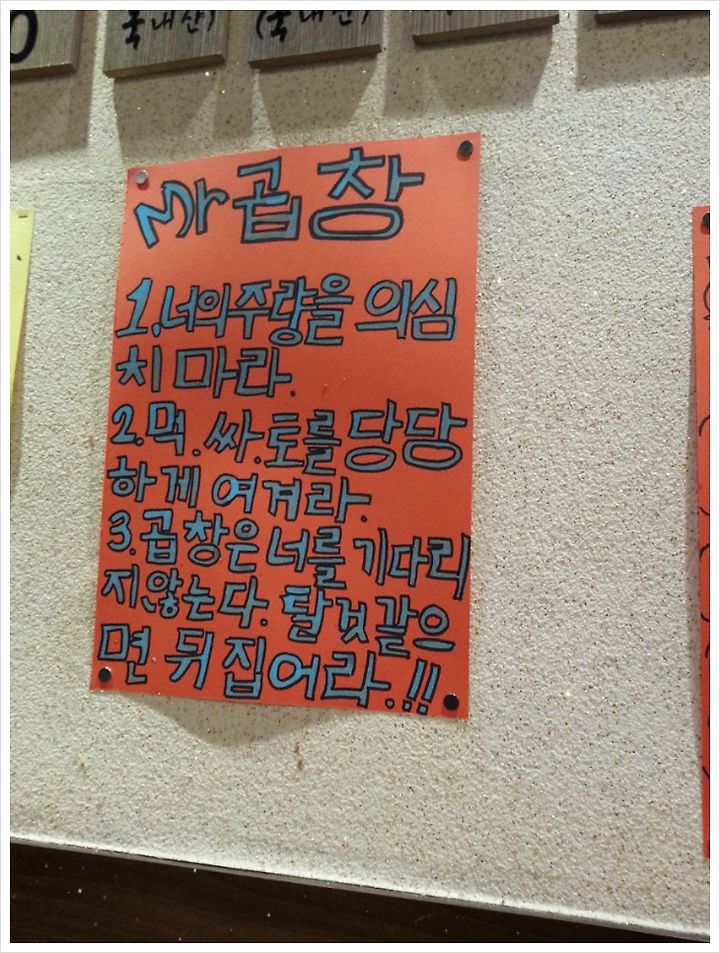 0
국내산)
(국내산)
Mr곱창
1.너의주량을 의심
치 마라.
2.먹.싸.토를당당
하게 여겨라.
3.곱창은 너를 기다리
지않는다. 탈것같으
면 뒤집어라.!!